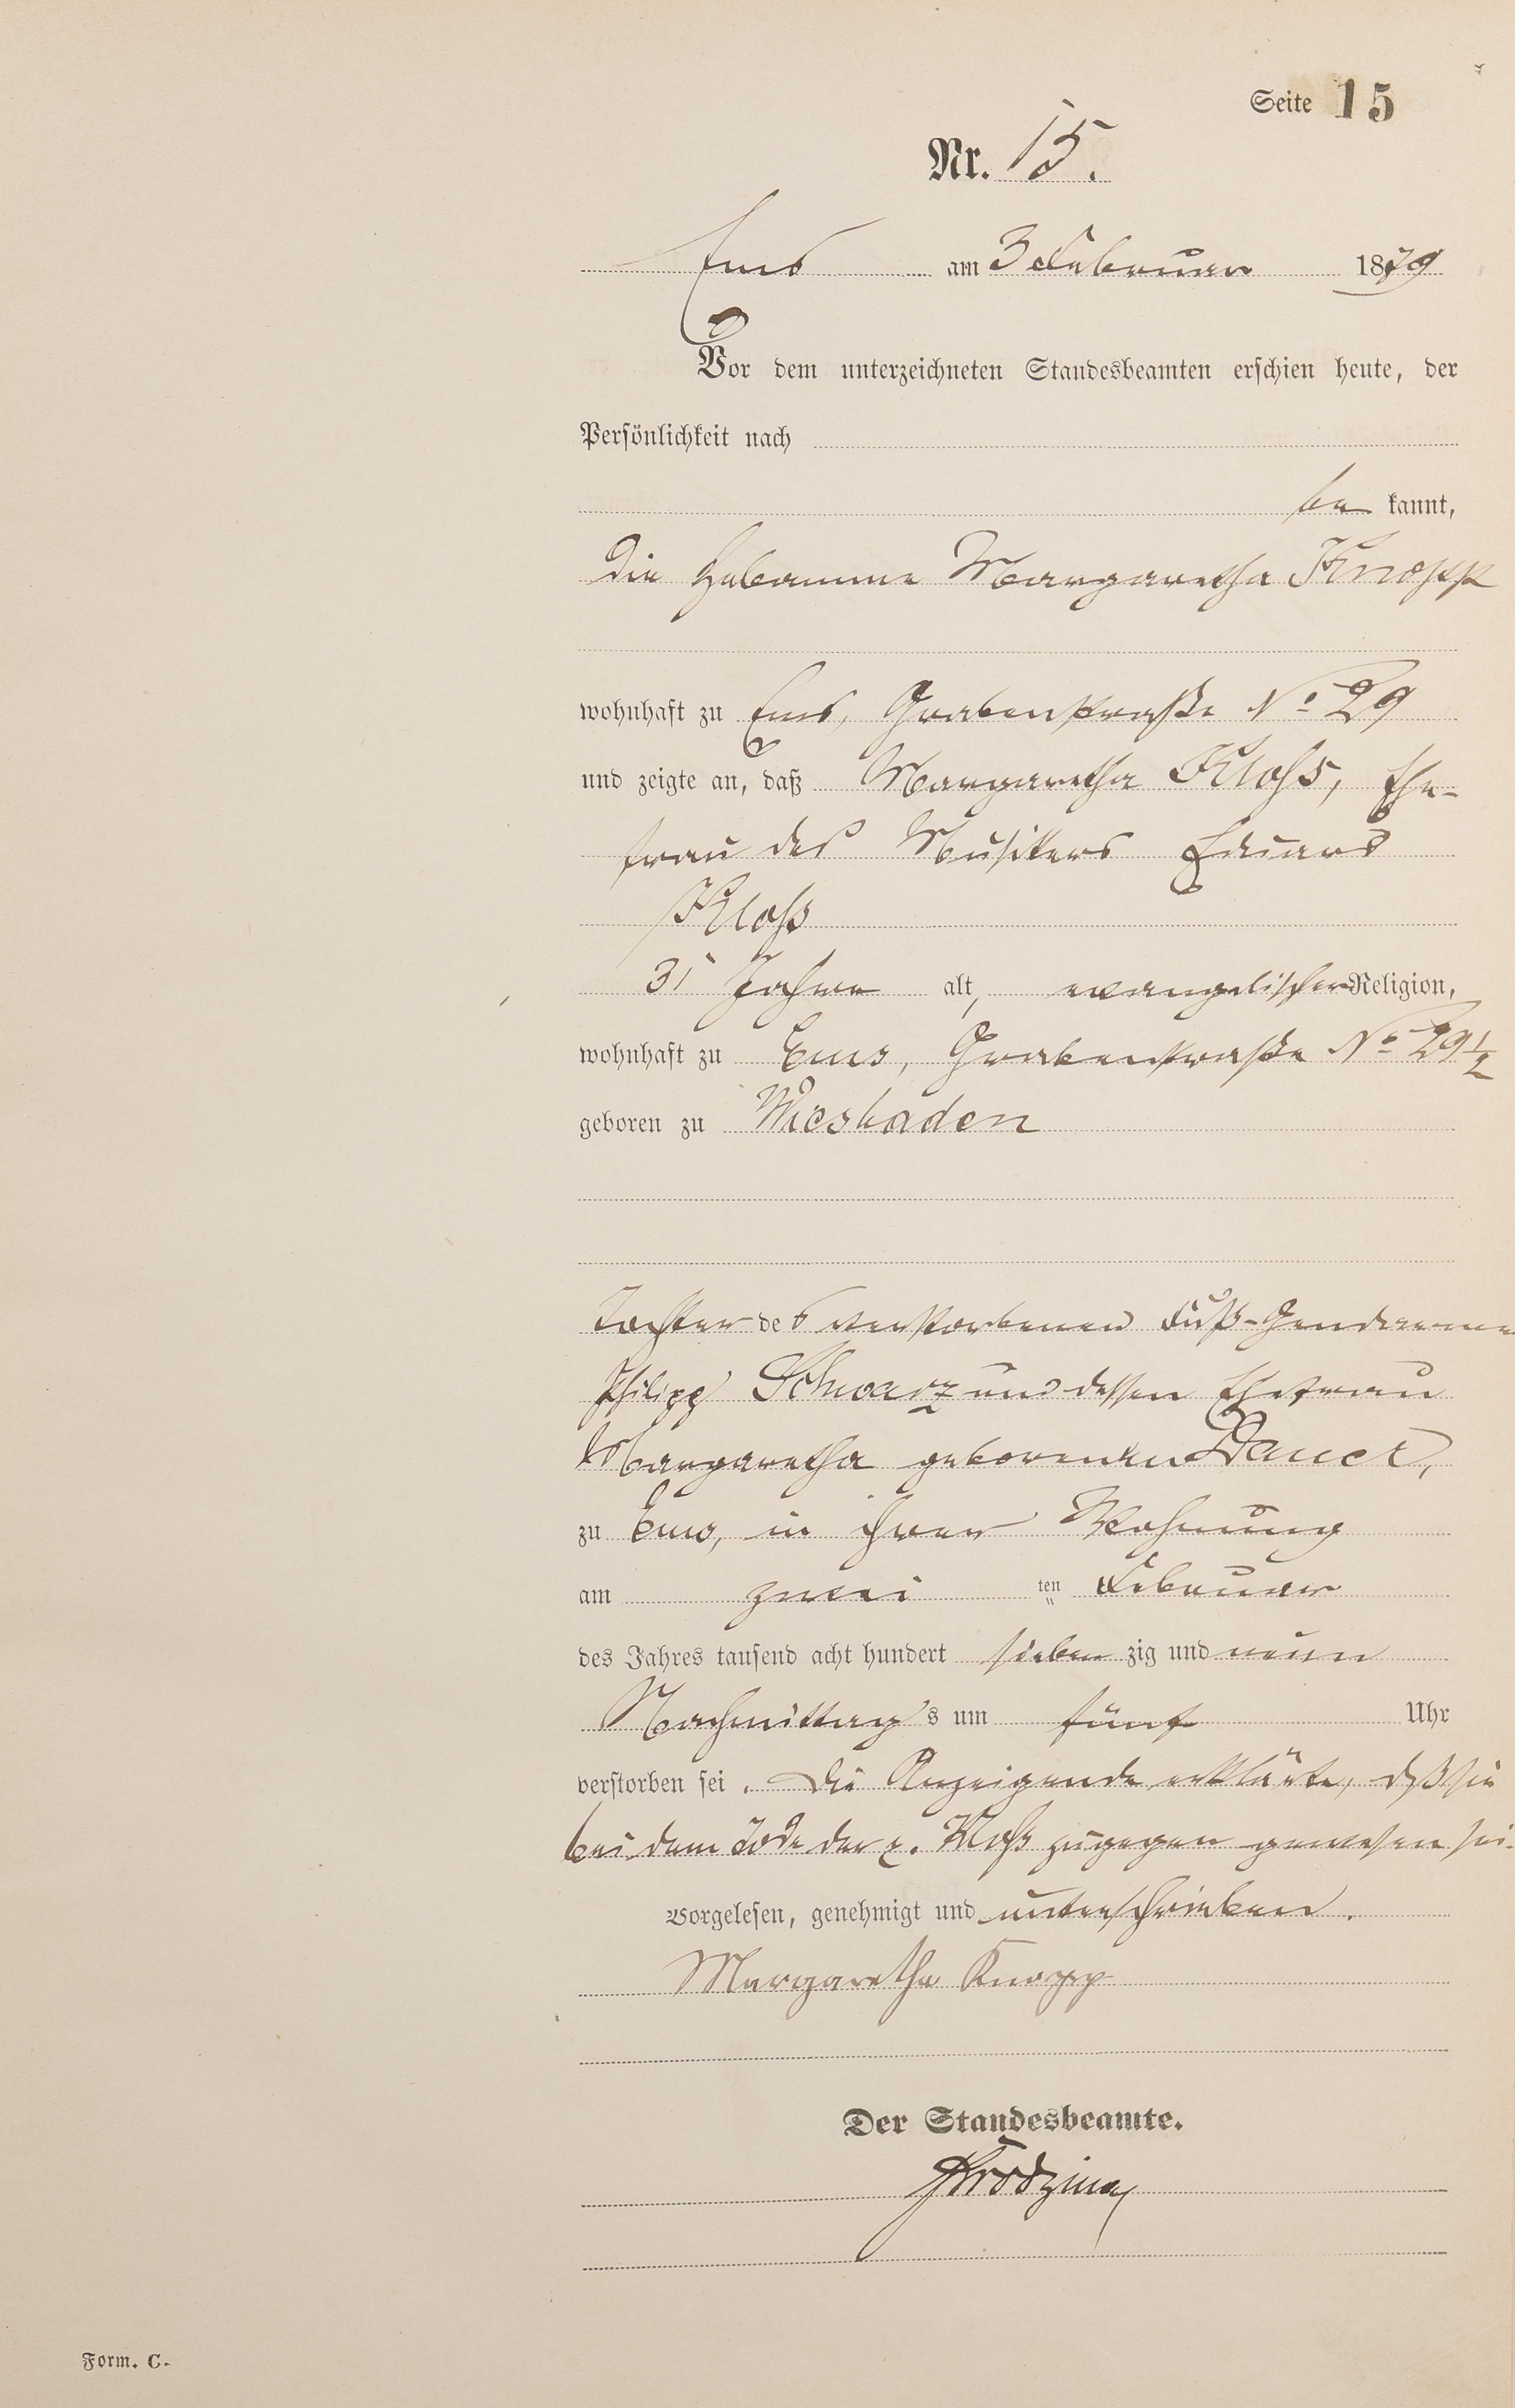 Seite 15
Nr. 15.
Ems am 3 Februar 1879
Vor dem unterzeichneten Standesbeamten erschien heute, der
Persönlichkeit nach
be kannt,
die Hebamme Margaretha Knopp
wohnhaft zu Ems, Grabenstraße No 29
und zeigte an, daß Margaretha Kloß, Ehe-
frau des Musikers Eduard
Kloß
31 Jahre alt, evangelischer Religion,
wohnhaft zu Ems, Grabenstraße No 29 1/2
geboren zu Wiesbaden
Tochter des verstorbenen Fuß-Gendarmen
Philipp Schwarz und dessen Ehefrau
Margaretha geborenen
zu Ems, in ihrer Wohnung
am zwei ten Februar
des Jahres tausend acht hundert sieben zig und neun
Nachmittag s um fünf Uhr
verstorben sei. Die Anzeigende erklärte, daß sie
bei dem Tode der p. Kloß zugegen gewesen sei.
Vorgelesen, genehmigt und unterschrieben.
Margaretha Knopp
Der Standesbeamte.
Form. C.